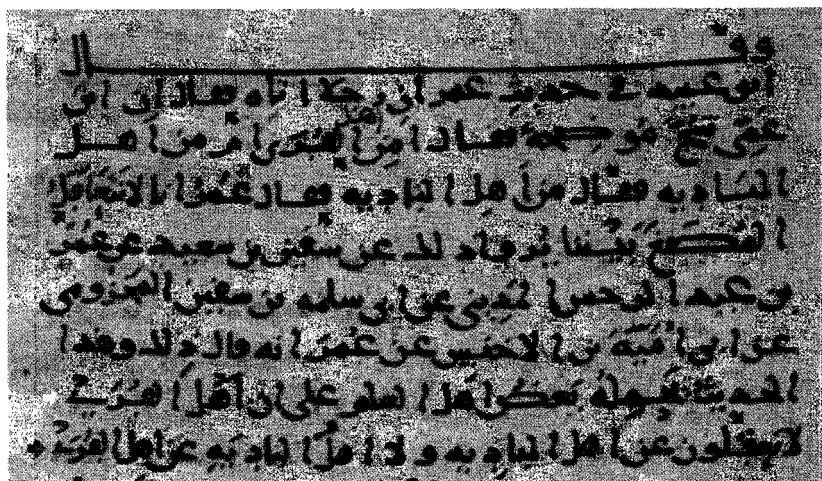 وقـــــــال
أبو عبيد في حديث عمر أن رجلا أتاه فقال إن ابن
عمي شج موضحة فقال أمن أهل القرى أم من أهل
البادية فقال من أهل البادية فقال عمر إنا لا نتعاقل
المضغ بيننا يروى ذلك عن سفين بن سعيد عن عمر
بن عبد الرحمن المديني عن أبي سلمة بن سفين المخزومي
عن أبي أمية بن الأخنس عن عمر أنه قال ذلك وهذا
الحديث يحمله بعض أهل العلم على أن أهل القرى
لا يعقلون عن أهل البادية ولا أهل البادية عن أهل القرى